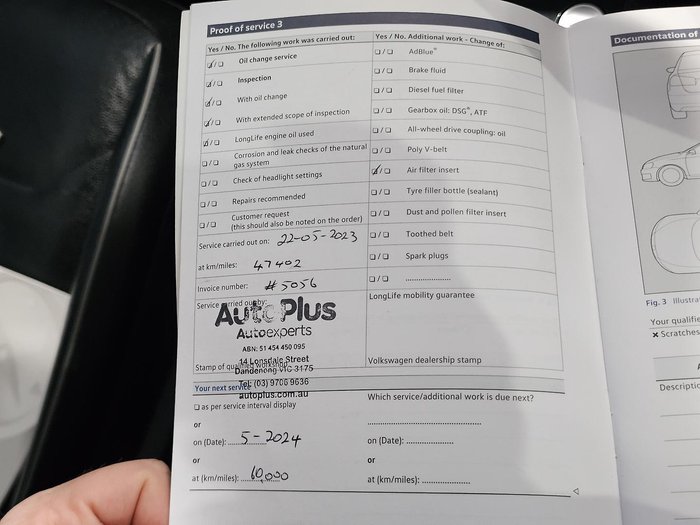 Proof of service 3
Yes / No. The following work was carried out:
☑/☐ Oil change service
☑/☐ Inspection
☑/☐ With oil change
☑/☐ With extended scope of inspection
☑/☐ LongLife engine oil used
☐/☐ Corrosion and leak checks of the natural
gas system
☐/☐ Check of headlight settings
☐/☐ Repairs recommended
☐/☐ Customer request
(this should also be noted on the order)
Service carried out on: 22-05-2023
at km/miles: 47402
Invoice number: #5056
Service carried out by:
Auto Plus
Autoexperts
ABN: 51 454 450 095
14 Lonsdale Street
Stamp of qualified workshop
Dandenong VIC 3175
Tel: (03) 9706 9636
autoplus.com.au
Yes / No. Additional work - Change of:
☐/☐ AdBlue®
☐/☐ Brake fluid
☐/☐ Diesel fuel filter
☐/☐ Gearbox oil: DSG®, ATF
☐/☐ All-wheel drive coupling: oil
☐/☐ Poly V-belt
☑/☐ Air filter insert
☐/☐ Tyre filler bottle (sealant)
☐/☐ Dust and pollen filter insert
☐/☐ Toothed belt
☐/☐ Spark plugs
☐/☐ ....................
LongLife mobility guarantee
Volkswagen dealership stamp
Your next service
☐ as per service interval display
or
on (Date): 5-2024
or
at (km/miles): 60,000
Which service/additional work is due next?
on (Date): ....................
or
at (km/miles): ....................
Documentation of
Fig. 3 Illustra
Your qualifie
× Scratches
Descriptio